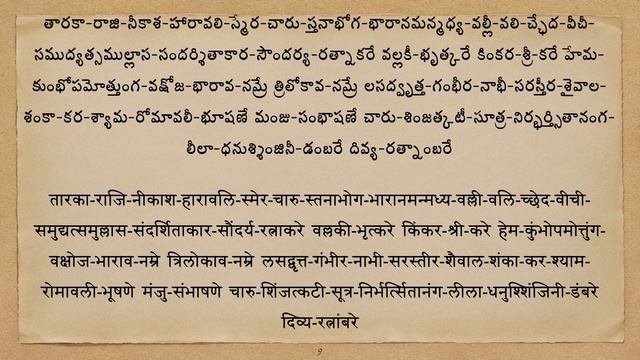 తారకా-రాజి-నీకాశ-హారావలి-స్మేర-చారు-స్తనాభోగ-భారానమన్మధ్య-వల్లీ-వలి-చ్ఛేద-వీచీ-
సముద్యత్సముల్లాస-సందర్శితాకార-సౌందర్య-రత్నాకరే వల్లకీ-భృత్కరే కింకర-శ్రీ-కరే హేమ-
కుంభోపమోత్తుంగ-వక్షోజ-భారావ-నమ్రే త్రిలోకావ-నమ్రే లసద్వృత్త-గంభీర-నాభీ-సరస్తీర-శైవాల-
శంకా-కర-శ్యామ-రోమావలీ-భూషణే మంజు-సంభాషణే చారు-శింజత్కటీ-సూత్ర-నిర్భర్త్సితానంగ-
లీలా-ధనుశ్శింజినీ-డంబరే దివ్య-రత్నాంబరే
तारका-राजि-नीकाश-हारावलि-स्मेर-चारु-स्तनाभोग-भारानमन्मध्य-वल्ली-वलि-च्छेद-वीची-
समुद्यत्समुल्लास-संदर्शिताकार-सौंदर्य-रत्नाकरे वल्लकी-भृत्करे किंकर-श्री-करे हेम-कुंभोपमोत्तुंग-
वक्षोज-भाराव-नम्रे त्रिलोकाव-नम्रे लसद्वृत्त-गंभीर-नाभी-सरस्तीर-शैवाल-शंका-कर-श्याम-
रोमावली-भूषणे मंजु-संभाषणे चारु-शिंजत्कटी-सूत्र-निर्भर्त्सितानंग-लीला-धनुश्शिंजिनी-डंबरे
दिव्य-रत्नांबरे
9